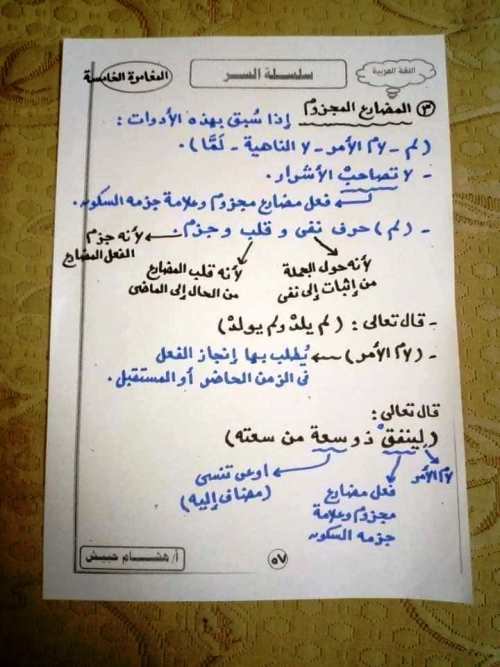 اللغة العربية
سلسلة السر
المغامرة الخامسة
٣ المضارع المجزوم إذا سُبق بهذه الأدوات :
(لم - لام الأمر - لا الناهية - لمَّا) .
- لا تصاحبْ الأشرار .
فعل مضارع مجزوم وعلامة جزمه السكون .
- (لم) حرف نفى و قلب و جزم .
لأنه جزم
الفعل المضارع
لأنه قلب المضارع
من الحال إلى الماضى
لأنه حول الجملة
من إثبات إلى نفى
- قال تعالى : (لم يلدْ ولم يولدْ)
- (لام الأمر) يُطلب بها إنجاز الفعل
فى الزمن الحاضر أو المستقبل .
قال تعالى :
(لينفقْ ذو سعة من سعته)
لام الأمر
فعل مضارع
مجزوم وعلامة
جزمه السكون
اوعى تنسى
(مضاف إليه)
٥٧
أ/ هشام حبيش